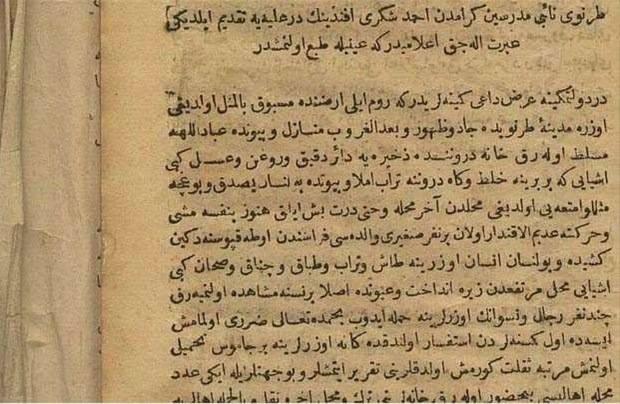 طرنوی نائبی مدرسین کرامدن احمد شکری افندینك درعلیه یه تقدیم ایلدیکی
عبرت اله جق اعلامیدر که عینیله طبع اولنمشدر
در دولتمکینه عرض داعی کمینه لریدر که روم ایلی ارضنده مسبوق بالمثل اولدیغی
اوزره مدینهٔ طرنویده جادو ظهور و بعد الغروب منازل و بیوته عباد اللهه
مسلط اوله رق خانه دروننده ذخیره یه دائر دقیق و روغن و عسل کبی
اشیایی که بربرینه خلط و کاه دروننه تراب املا و بیوتده یصدق و بوغچه
مثللو امتعه یی اولدیغی محلدن آخر محله وحتی درت بش ایلق هنوز بنفسه مشی
و حرکته عدیم الاقتدار اولان بر نفر صغیری والده سی فراشندن اوطه قپوسنه دکین
کشیده و بولنان انسان اوزرینه طاش و تراب و طباق و چناق و صحان کبی
اشیایی محل مرتفعدن زیره انداخت و عیونده اصلا برنسنه مشاهده اولنمیه رق
چند نفر رجال و نسوانك اوزرلرینه حمله ایدوب بحمده تعالی ضرری اولمامش
ایسه ده اول کمسنه لردن استفسار اولندقده کانه اوزرلرینه بر جاموس تحمیلی
اولنمش مرتبه ثقلت کورمش اولدقلرینی تقریر ایتمشلر و بوجهتلریله ایکی عدد
محله اهالیسی بیحضور اوله رق خانه لرینی ترك و محل اخره نقل و بالجمله اهالی